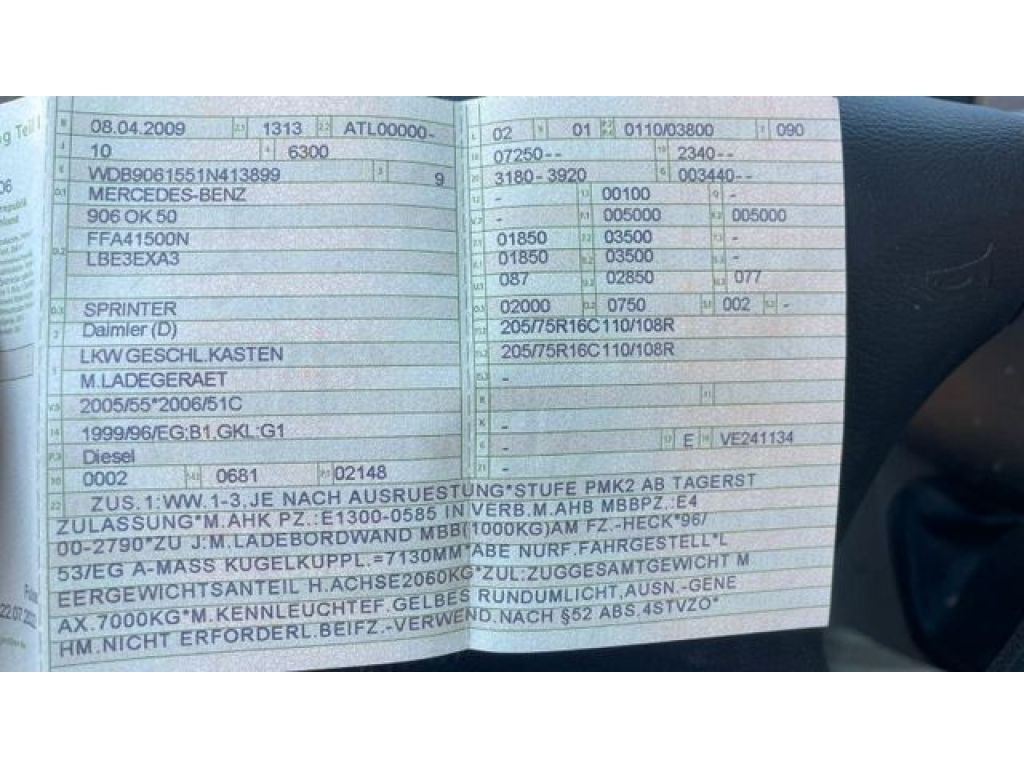 g Teil I
06
22.07.202
B 08.04.2009 2.1 1313 2.2 ATL00000-
J 10 4 6300
E WDB9061551N413899 3 9
D.1 MERCEDES-BENZ
906 OK 50
D.2 FFA41500N
LBE3EXA3
D.3 SPRINTER
2 Daimler (D)
5 LKW GESCHL.KASTEN
M.LADEGERAET
V.9 2005/55*2006/51C
14 1999/96/EG;B1,GKL:G1
P.3 Diesel
10 0002 14.1 0681 P.1 02148
L 02 9 01 P.2 P.4 0110/03800 T 090
18 07250-- 19 2340--
20 3180-3920 G 003440--
12 - 13 00100 Q -
V.7 - F.1 005000 F.2 005000
7.1 01850 7.2 03500 7.3 -
8.1 01850 8.2 03500 8.3 -
U.1 087 U.2 02850 U.3 077
O.1 02000 O.2 0750 S.1 002 S.2 -
15.1 205/75R16C110/108R
15.2 205/75R16C110/108R
15.3 -
R 11
K -
6 - 17 E 16 VE241134
21 -
22 ZUS.1:WW.1-3,JE NACH AUSRUESTUNG*STUFE PMK2 AB TAGERST
ZULASSUNG*M.AHK PZ.:E1300-0585 IN VERB.M.AHB MBBPZ.:E4
00-2790*ZU J:M.LADEBORDWAND MBB(1000KG)AM FZ.-HECK*96/
53/EG A-MASS KUGELKUPPL.=7130MM*ABE NURF.FAHRGESTELL*L
EERGEWICHTSANTEIL H.ACHSE2060KG*ZUL:ZUGGESAMTGEWICHT M
AX.7000KG*M.KENNLEUCHTEF.GELBES RUNDUMLICHT,AUSN.-GENE
HM.NICHT ERFORDERL.BEIFZ.-VERWEND.NACH §52 ABS.4STVZO*